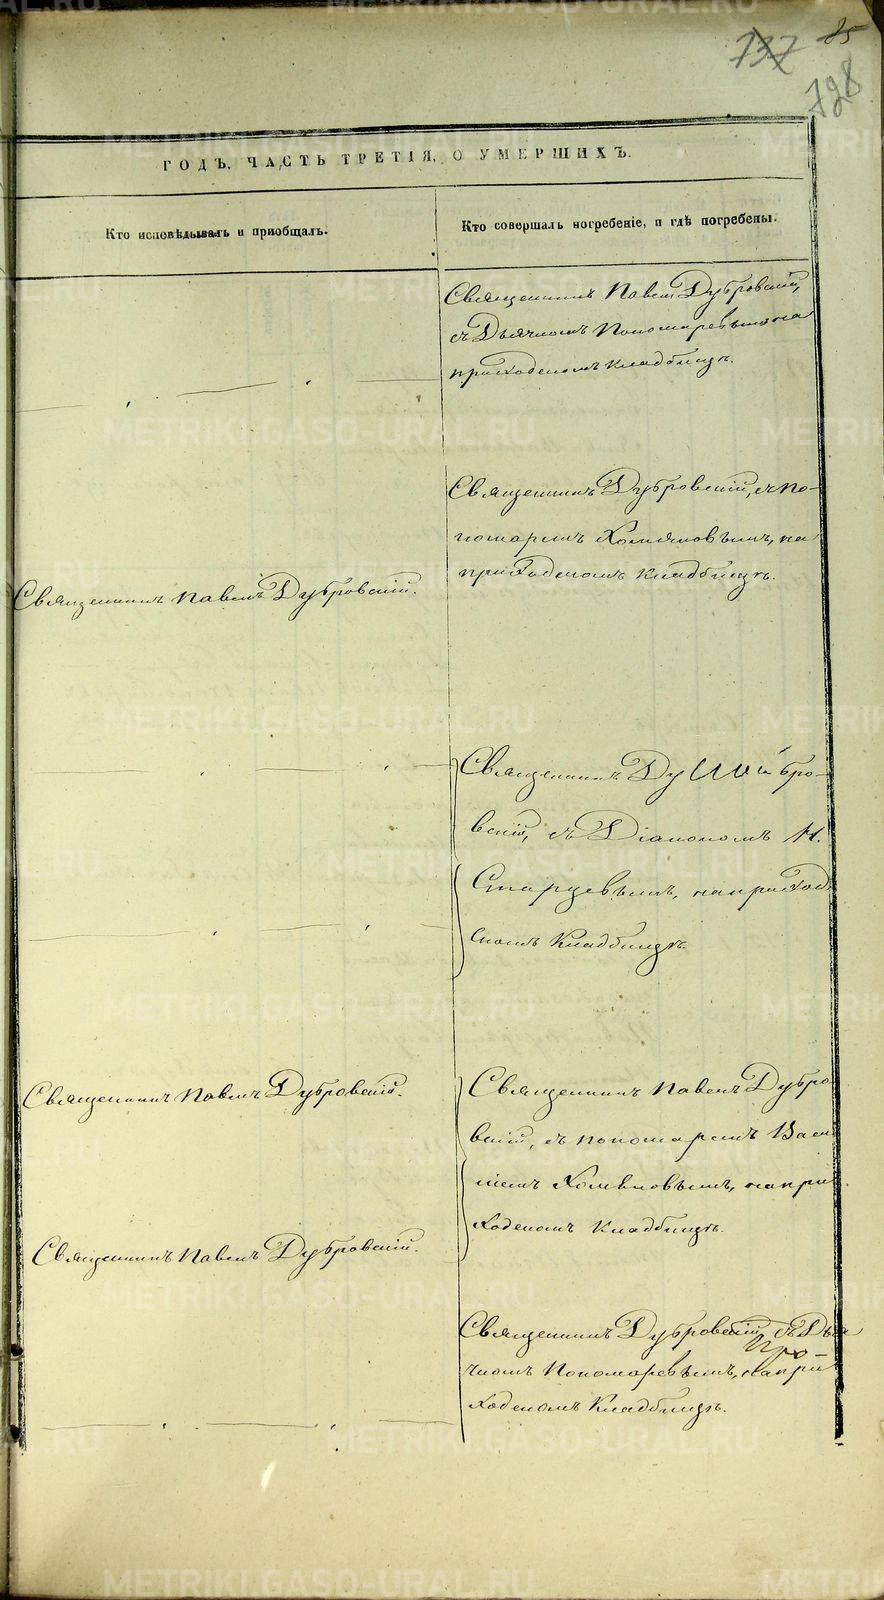 85
737
728
ГОДЪ, ЧАСТЬ ТРЕТІЯ, О УМЕРШИХЪ.
Кто исповѣдывалъ и пріобщалъ.
Кто совершалъ погребеніе, и гдѣ погребены.
Священникъ Павелъ Дубровскій,
съ Дьячкомъ Пономаревымъ на
приходскомъ кладбищѣ.
Священникъ Дубровскій, съ по-
номаремъ Хомяковымъ, на
приходскомъ кладбищѣ.
Священникъ Павелъ Дубровскій.
Священникъ Ду бро-
вскій, съ Діакономъ Н.
Старцевымъ, на приход
скомъ кладбищѣ.
Священникъ Павелъ Дубровскій.
Священникъ Павелъ Дубро
вскій, съ пономаремъ Васи
ліемъ Хомяковымъ, на при
ходскомъ кладбищѣ.
Священникъ Павелъ Дубровскій.
Священникъ Дубровскій, съ Дья
чкомъ Пономаревымъ, на при
ходскомъ кладбищѣ.
METRIKI.GASO-URAL.RU